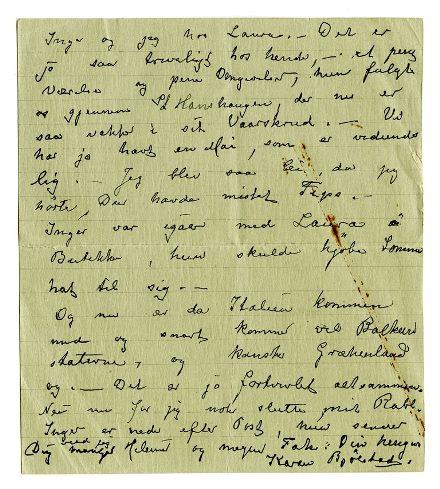 Inger og jeg hos Laura. – Det er
jo saa hos hende, – et pent
Værelse og pene Omgivelser, hun fulgte
os gjennem St Hanshaugen, der nu er
saa vakker i sit Vaarskrud. – Vi
har jo havt en Mai, som er vidunder
lig. – Jeg blev saa lei, da jeg
hørte, De havde mistet Fips. –
Inger var igaar med Laura i
Butikker, hun skulde kjøbe Sommer
hat til sig. –
Og nu er da Italien kommen
med og snart kommer vel Balkan
staterne, og kanske Grækenland
og. – Det er jo altsammen.
Nei nu faar jeg nok slutte mit Rabl.
Inger er nede efter Post, hun sender
Dig mange Hilsener og megen Tak. Din hengivne
Karen Bjølstad.